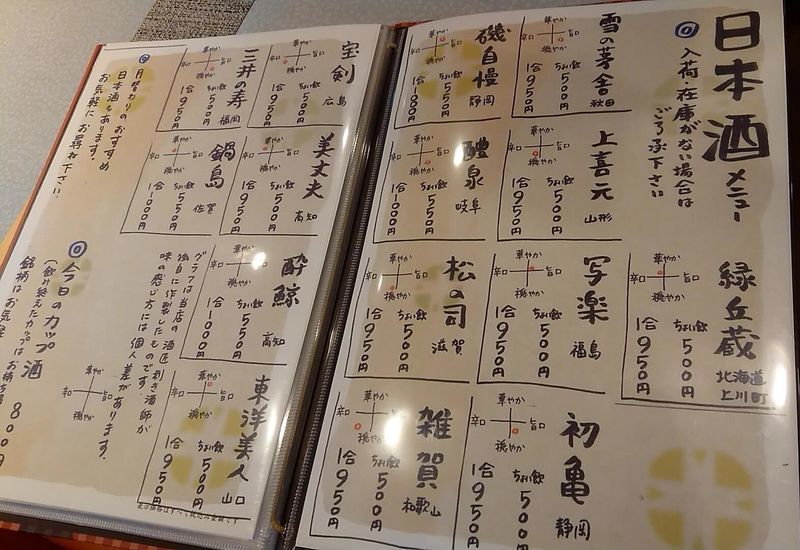 日本酒メニュー
入荷・在庫がない場合は
ごろ承下さい
緑丘蔵
北海道
上川町
華やか
辛口
旨口
穏やか
ちょい飲
500円
1合
950円
雪の茅舎
秋田
華やか
辛口
旨口
穏やか
ちょい飲
500円
1合
950円
上喜元
山形
華やか
辛口
旨口
穏やか
ちょい飲
500円
1合
950円
写楽
福島
華やか
辛口
旨口
穏やか
ちょい飲
500円
1合
950円
初亀
静岡
華やか
辛口
旨口
穏やか
ちょい飲
500円
1合
950円
磯自慢
静岡
華やか
辛口
旨口
穏やか
ちょい飲
550円
1合
1000円
醴泉
岐阜
華やか
辛口
旨口
穏やか
ちょい飲
550円
1合
1000円
松の司
滋賀
華やか
辛口
旨口
穏やか
ちょい飲
500円
1合
950円
雑賀
和歌山
華やか
辛口
旨口
穏やか
ちょい飲
500円
1合
950円
宝剣
広島
華やか
辛口
旨口
穏やか
ちょい飲
500円
1合
950円
美丈夫
高知
華やか
辛口
旨口
穏やか
ちょい飲
500円
1合
950円
酔鯨
高知
華やか
辛口
旨口
穏やか
ちょい飲
550円
1合
1000円
東洋美人
山口
華やか
辛口
旨口
穏やか
ちょい飲
500円
1合
950円
三井の寿
福岡
華やか
辛口
旨口
穏やか
ちょい飲
500円
1合
950円
鍋島
佐賀
華やか
辛口
旨口
穏やか
ちょい飲
550円
1合
1000円
華やか
辛口
旨口
穏やか
グラフは当店の酒匠、利き酒師が
独自に作製したものです。
味の感じ方には個人差があります。
月替わりのおすすめ
日本酒もあります。
お気軽にお尋ね下さい。
今日のカップ酒
800円
(飲み終えたカップはお持ち
銘柄はお気軽
表示価格はすべて税込み金額です